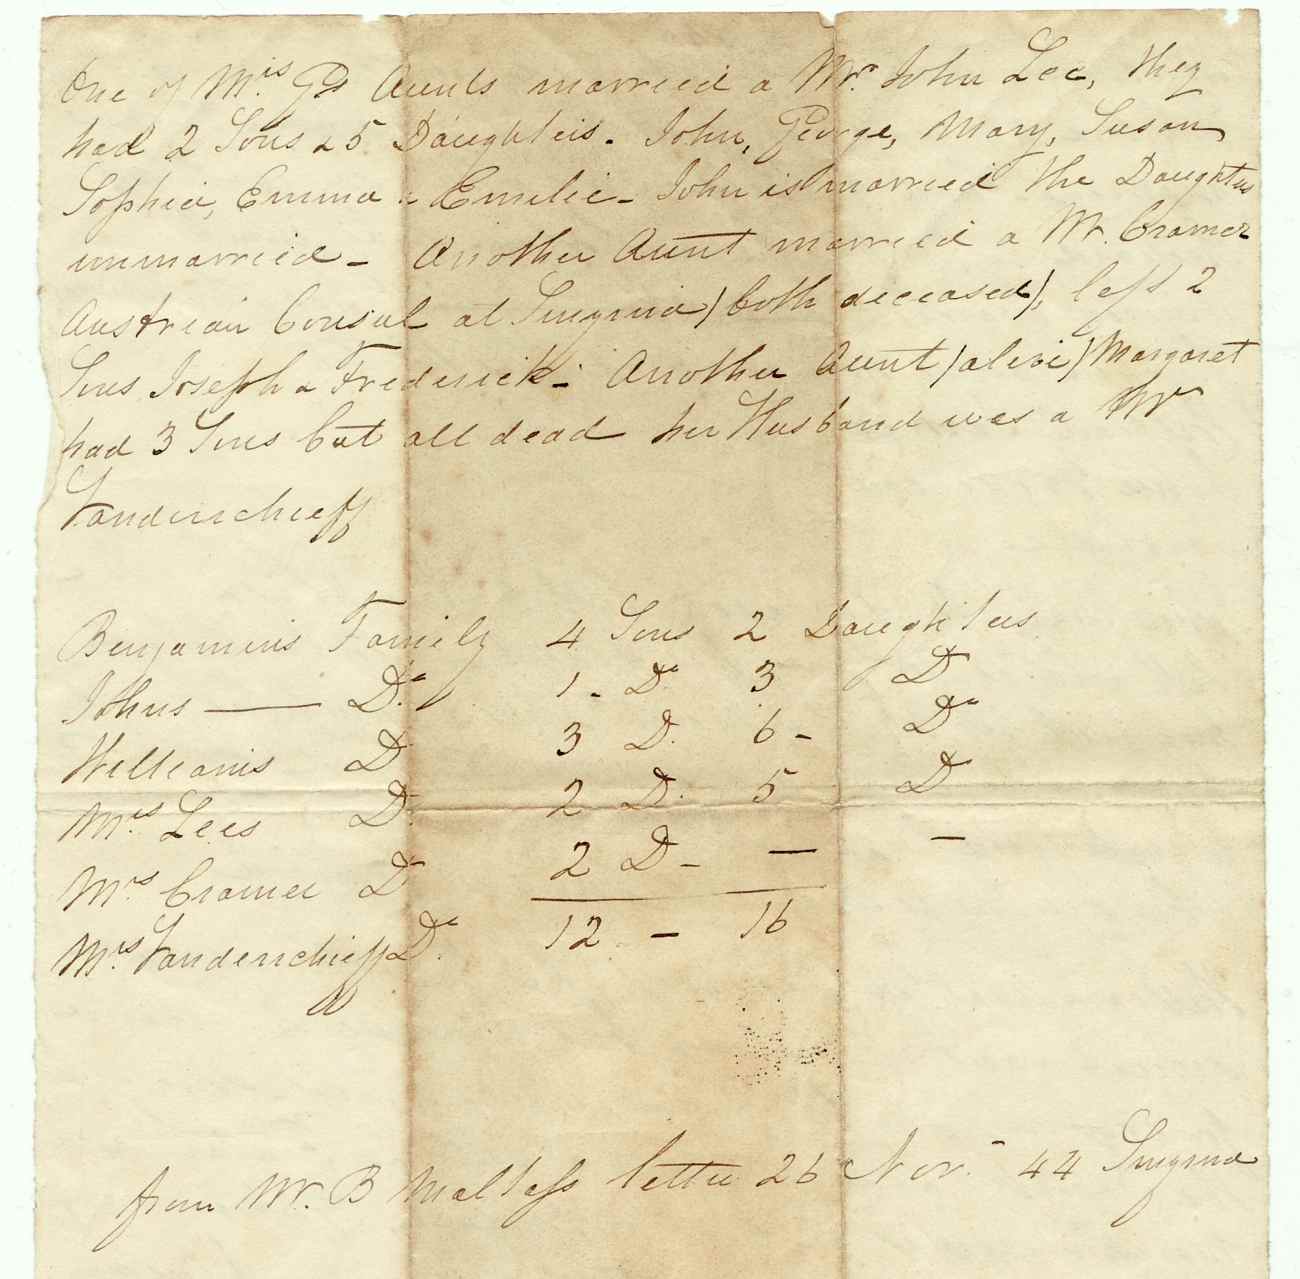 One of Mrs Gs Aunts married a Mr. John Lee, they
had 2 Sons & 5 Daughters. John, George, Mary, Susan
Sophia, Emma & Emilie - John is married the Daughters
unmarried - Another Aunt married a Mr. Cramer
Austrian Consul at Smyrna) both deceased), left 2
Sons Joseph & Frederick. Another Aunt (alive) Margaret
had 3 Sons but all dead her Husband was a Mr
Vanderchieff
Benjamins Family 4 Sons 2 Daughters
Johns — Do. 1 - Do 3 Do
Williams Do 3 Do. 6 - Do
Mrs. Lees Do. 2 Do. 5 Do
Mrs. Cramer Do 2 Do - — —
Mrs. Vanderchieff Do. 12 - 16
from Mr. B Maltass letter 26 Nov. 44 Smyrna